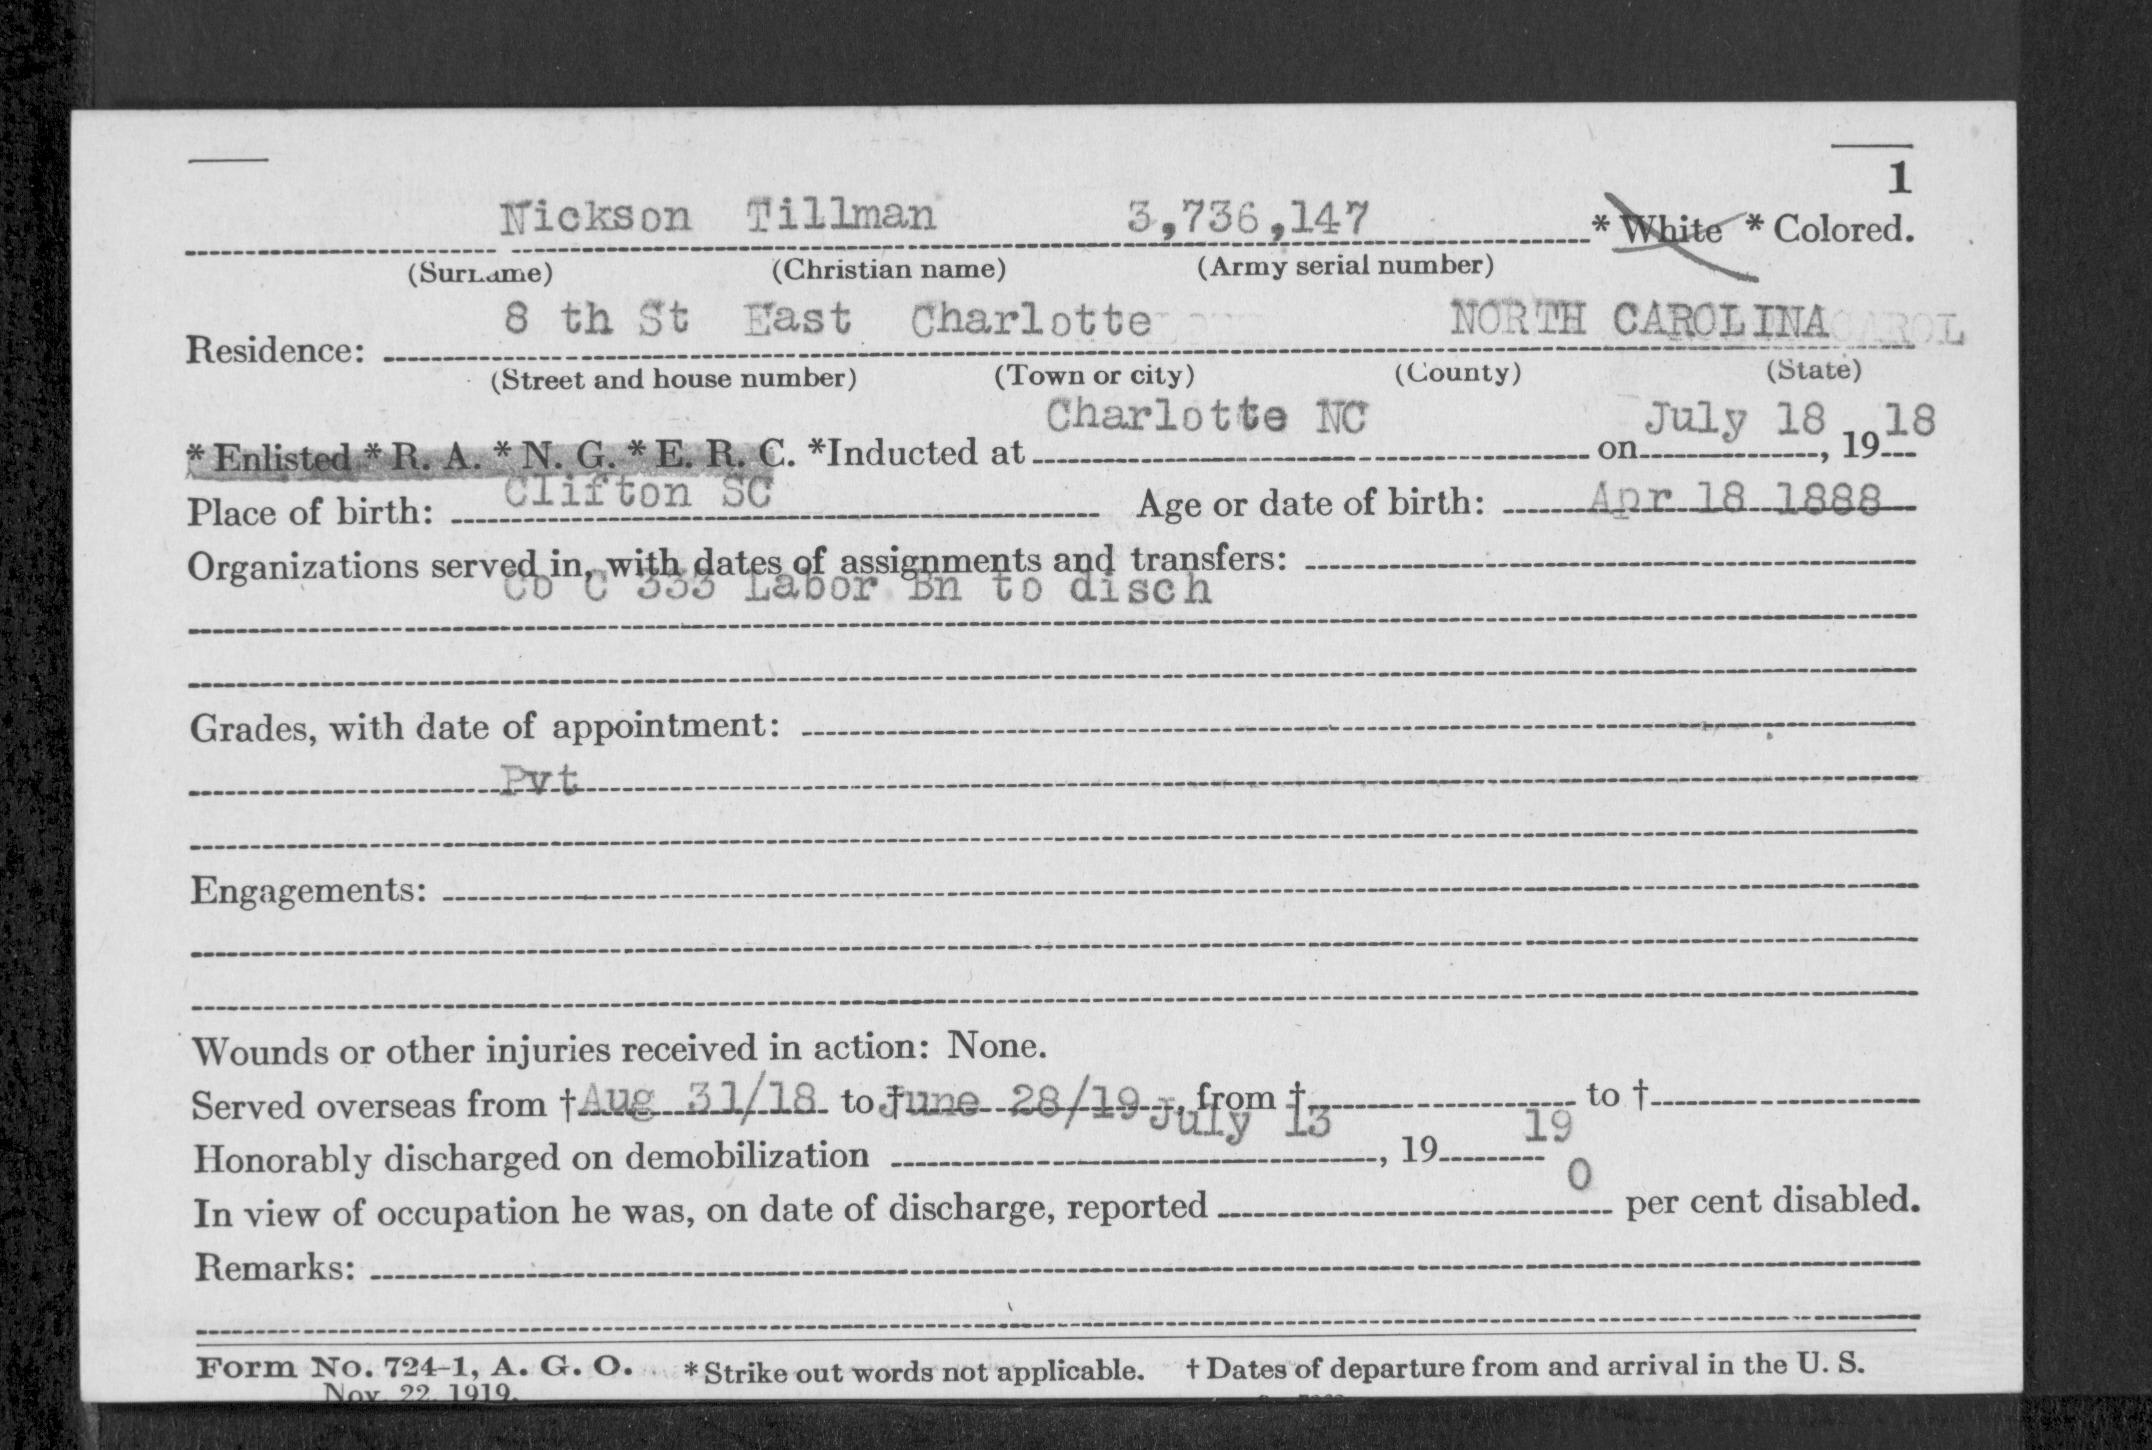 1
Nickson Tillman 3,736,147 * White * Colored.
(Surname) (Christian name) (Army serial number)
8 th St East Charlotte NORTH CAROLINA
Residence:
(Street and house number) (Town or city) (County) (State)
Charlotte NC July 18 18
* Enlisted * R. A. * N. G. * E. R. C. *Inducted at on , 19
Place of birth: Clifton SC Age or date of birth: Apr 18 1888
Organizations served in, with dates of assignments and transfers:
Co C 333 Labor Bn to disch
Grades, with date of appointment:
Pvt
Engagements:
Wounds or other injuries received in action: None.
Served overseas from † Aug 31/18 to † June 28/19, from † to †
Honorably discharged on demobilization July 13, 19 19
In view of occupation he was, on date of discharge, reported 0 per cent disabled.
Remarks:
Form No. 724-1, A. G. O. * Strike out words not applicable. † Dates of departure from and arrival in the U. S.
Nov. 22, 1919.